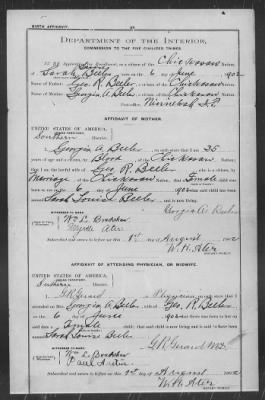 BIRTH AFFIDAVIT.
DEPARTMENT OF THE INTERIOR,
COMMISSION TO THE FIVE CIVILIZED TRIBES.
IN RE Application for Enrollment, as a citizen of the Chickasaw Nation,
of Sarah Louise Beeler, born on the 6 day of June, 1902
Name of Father: Geo. R. Beeler a citizen of the Chickasaw Nation.
Name of Mother: Georgia A. Beeler a citizen of the Chickasaw Nation.
Post-office, I.T.
AFFIDAVIT OF MOTHER.
UNITED STATES OF AMERICA,
INDIAN TERRITORY,
Southern District.
I, Georgia A. Beeler, on oath state that I am 25
years of age and a citizen, by Blood, of the Chickasaw Nation;
that I am the lawful wife of Geo. R. Beeler, who is a citizen, by
Marriage of the Chickasaw Nation; that a Female child was
born to me on 6 day of June, 1902; that said child has been named
Sarah Louise Beeler, and is now living.
Georgia A. Beeler
WITNESSES TO MARK:
Wm L. Bradshaw
Myrtle Ater
Subscribed and sworn to before me this 1st day of August, 1902
W. H. Ater
NOTARY PUBLIC.
AFFIDAVIT OF ATTENDING PHYSICIAN, OR MIDWIFE.
UNITED STATES OF AMERICA,
INDIAN TERRITORY,
Southern District.
I, G. R. Gerard, a Physician, on oath state that I
attended on Mrs. Georgia A. Beeler, wife of Geo. R. Beeler
on the 6 day of June, 1902; that there was born to her on
said date a Female child; that said child is now living and is said to have been
named Sarah Louise Beeler
G. R. Gerard M.D.
WITNESSES TO MARK:
Wm L. Bradshaw
Subscribed and sworn to before me this 1st day of August, 1902
W. H. Ater
NOTARY PUBLIC.